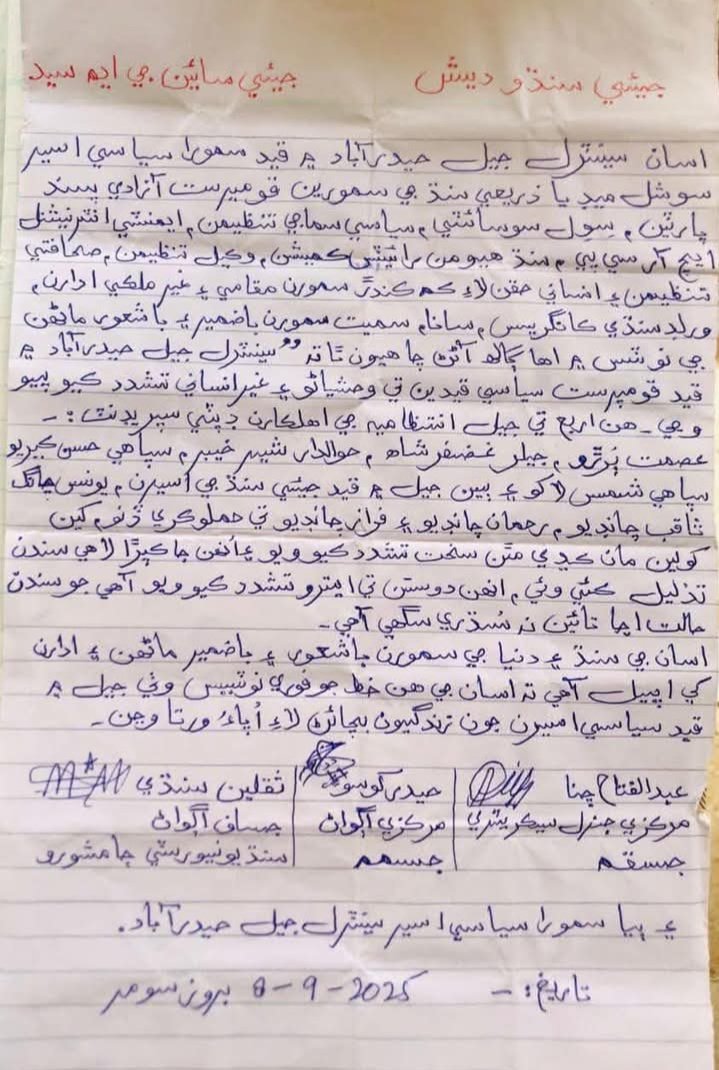 جيئي سنڌو ديش جيئي سائين جي ايم سيد
اسان سينٽرل جيل حيدرآباد ۾ قيد سمورا سياسي اسير
سوشل ميڊيا ذريعي سنڌ جي سمورين قومپرست آزادي پسند
پارٽين، سِول سوسائٽي، سياسي سماجي تنظيمن، ايمنسٽي انٽرنيشنل
ايڇ آر سي پي، سنڌ هيومن رائيٽس ڪميشن، وڪيل تنظيمن، صحافتي
تنظيمن ۽ انساني حقن لاءِ ڪم ڪندڙ سمورن مقامي ۽ غير ملڪي ادارن،
ورلڊ سنڌي ڪانگريس، سانا، سميت سمورن باضمير ۽ باشعور ماڻهن
جي نوٽس ۾ اها ڳالهه آڻڻ چاهيون ٿا ته "سينٽرل جيل حيدرآباد ۾
قيد قومپرست سياسي قيدين تي وحشياڻو ۽ غير انساني تشدد ڪيو پيو
وڃي۔ هن اربع تي جيل انتظاميه جي اهلڪارن ڊپٽي سپريڊنٽ:-
عصمت ٻرڙو، جيلر غضنفر شاهه، حوالدار شبير خيبر، سپاهي حسن کيريو
سپاهي شمس لاکو ۽ ٻين جيل ۾ قيد جيئي سنڌ جي اسيرن، يونس چانگ
ثاقب چانڊيو، رحمان چانڊيو ۽ فراز چانڊيو تي حملو ڪري ڏنڊم کين
کولين مان ڪڍي مٿن سخت تشدد ڪيو ويو ۽ اُنهن جا ڪپڙا لاهي سندن
تذليل ڪئي وئي، انهن دوستن تي ايترو تشدد ڪيو ويو آهي جو سندن
حالت اڃا تائين نه سُڌري سگهي آهي۔
اسان جي سنڌ ۽ دنيا جي سمورن باشعور ۽ باضمير ماڻهن ۽ ادارن
کي اپيل آهي ته اسان جي هن خط جو فوري نوٽيس وٺي جيل ۾
قيد سياسي اسيرن جون زندگيون بچائڻ لاءِ اُپاءُ ورتا وڃن۔
عبدالفتاح چنا | حيدر کوسو | ثقلين سنڌي
مرڪزي جنرل سيڪريٽري | مرڪزي اڳواڻ | جساف اڳواڻ
جسقم | جسمم | سنڌ يونيورسٽي ڄامشورو
۽ ٻيا سمورا سياسي اسير سينٽرل جيل حيدرآباد.
تاريخ:- 8-9-2025 بروز سومر